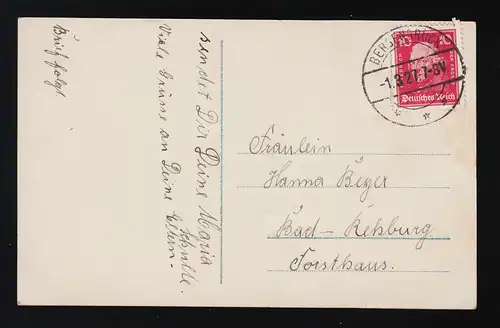 sendet Dir Deine Maria
Schulte.
Viele Grüsse an Deine Eltern.
Brief folgt
Fräulein
Hanna Beyer
Bad-Rehburg
Forsthaus.
10 10
Deutsches Reich
-1.3.27.7-8V